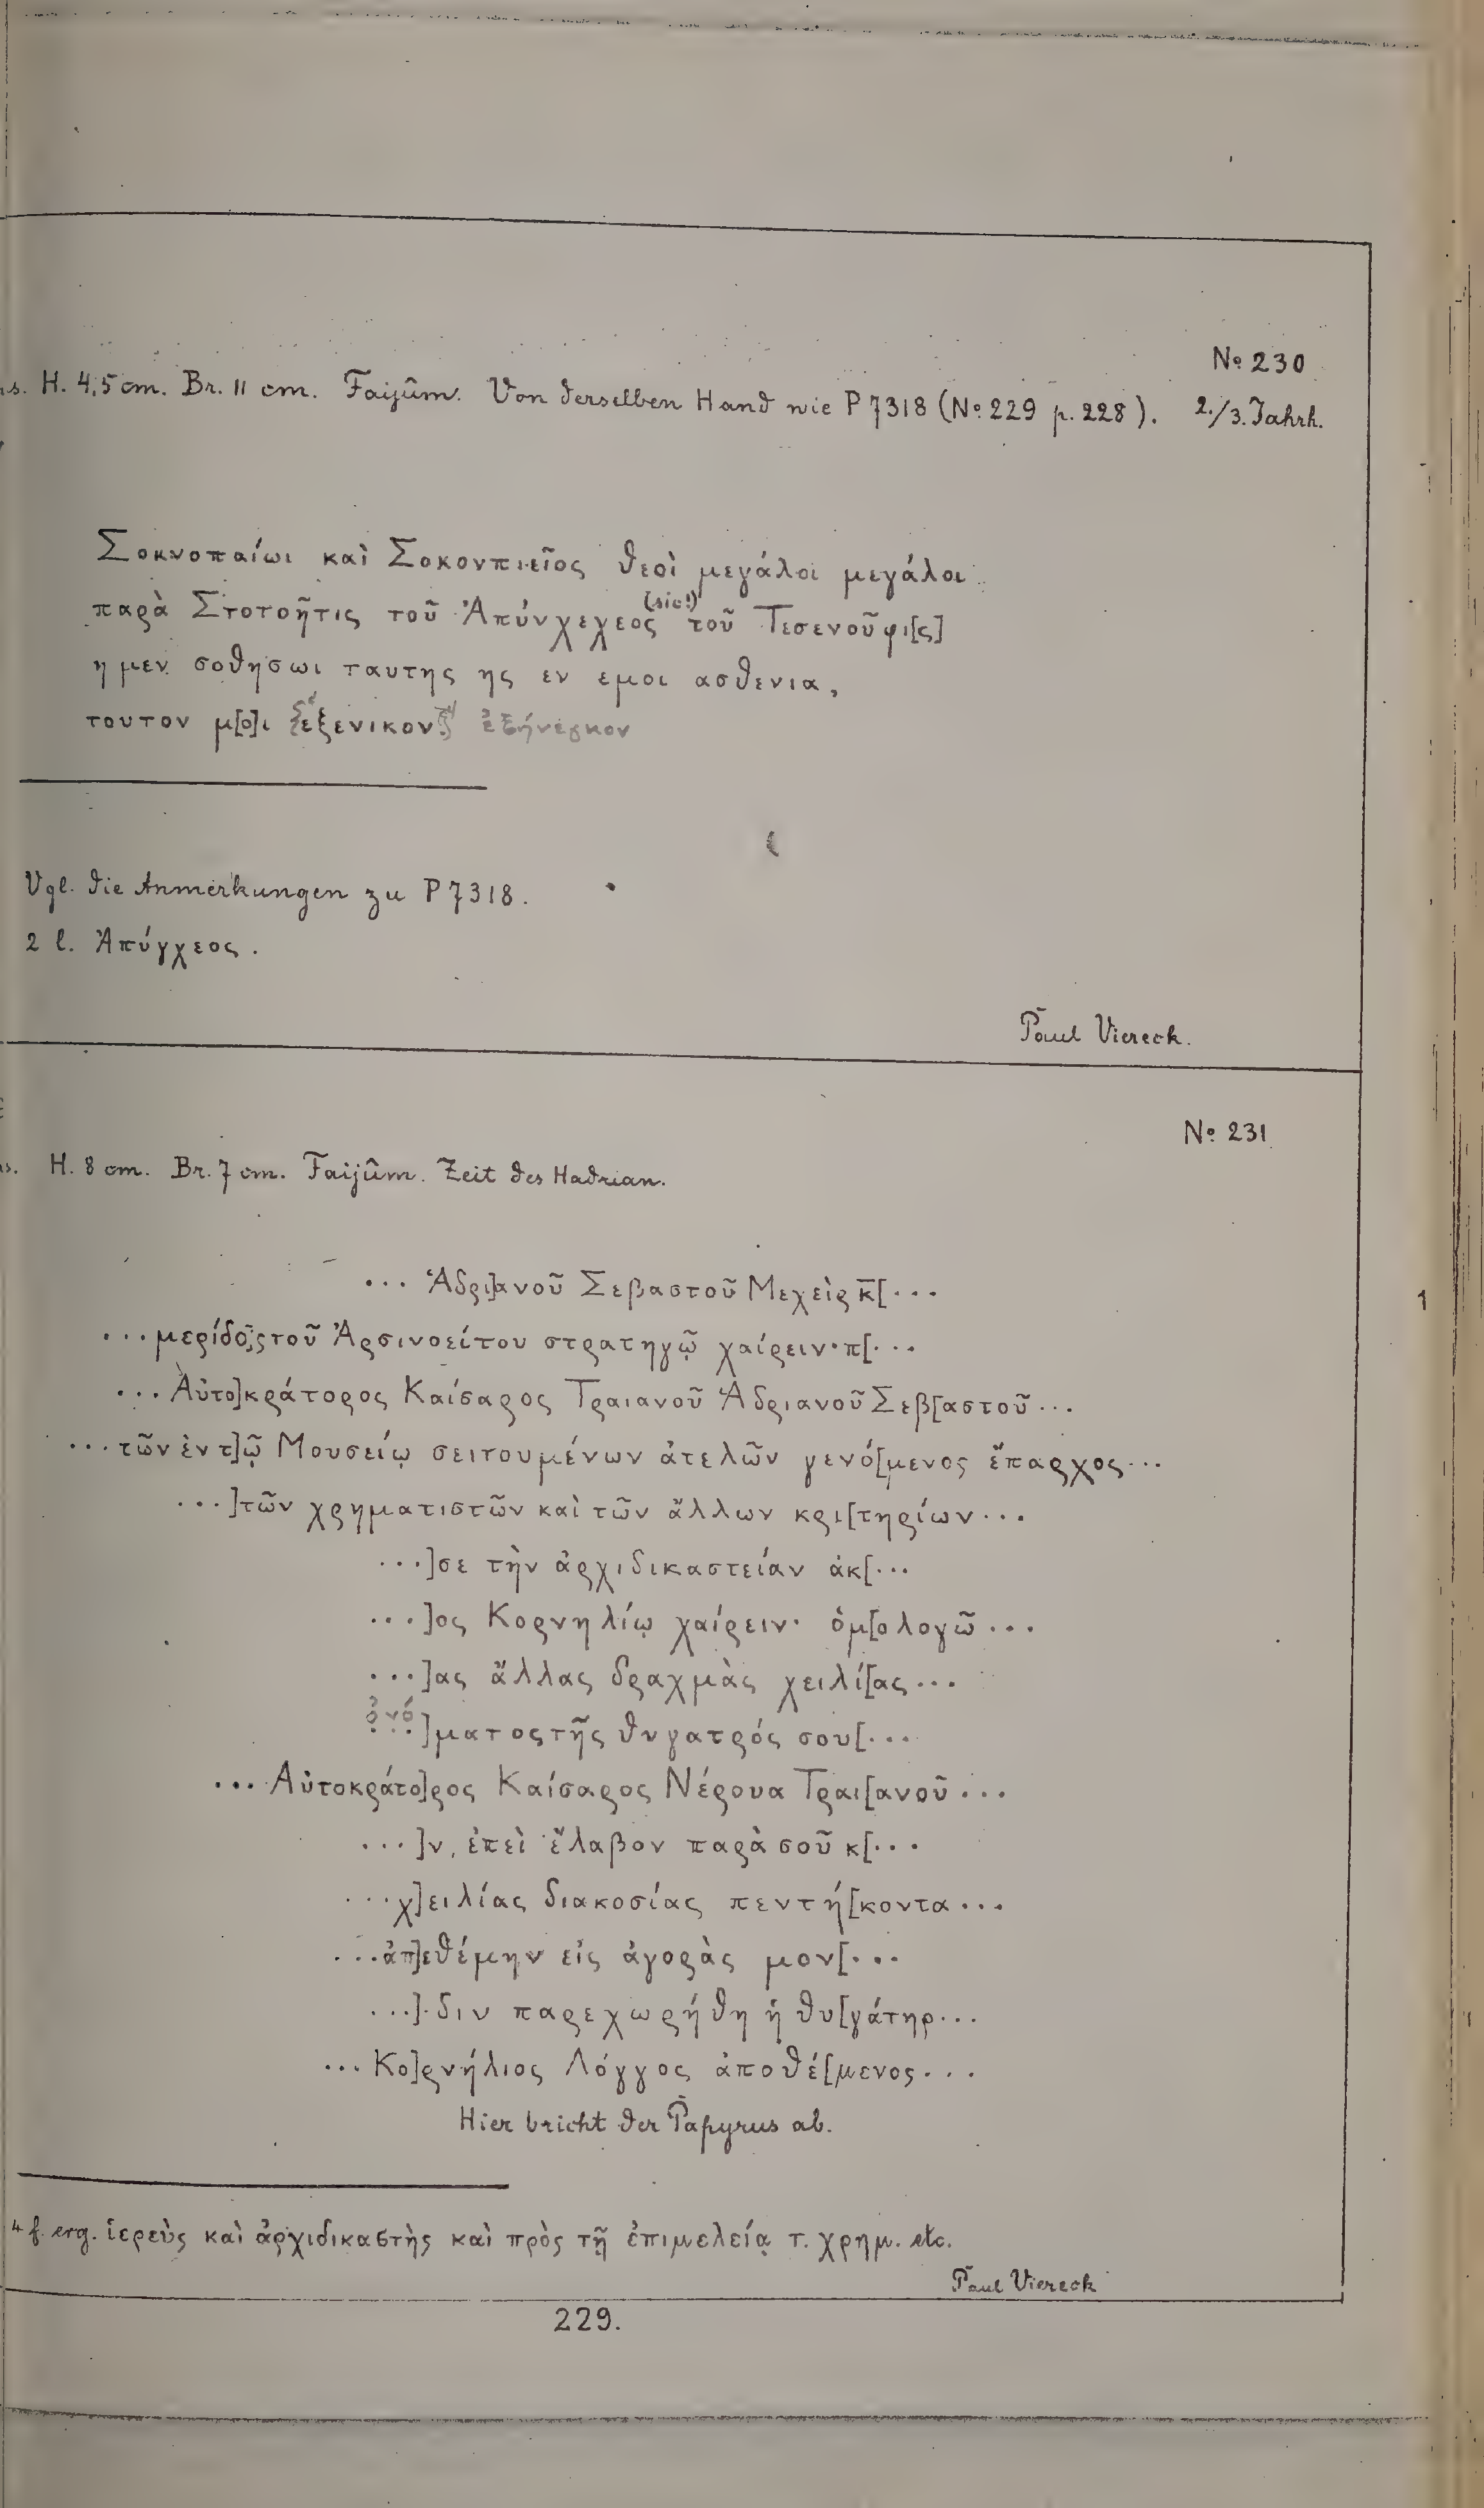 № 230
H. 4,5 cm. Br. 11 cm. Faijûm. Von derselben Hand wie P 7318 (№ 229 p. 228). 2./3. Jahrh.
Σοκνοπαίωι καὶ Σοκονπιεῖος θεοὶ μεγάλοι μεγάλοι
(sic!)
παρὰ Στοτοῆτις τοῦ Ἀπύνχεχεος τοῦ Τεσενοῦφι[ς]
η μεν σοθησωι ταυτης ης εν εμοι ασθενια,
τουτον μ[ο]ι ἐξενικον ἐξήνεγκον
Vgl. die Anmerkungen zu P 7318.
2 l. Ἀπύγχεος.
Paul Viereck.
№ 231
H. 8 cm. Br. 7 cm. Faijûm. Zeit des Hadrian.
... Ἁδρι]ανοῦ Σεβαστοῦ Μεχεὶρ κ̅[...
...μερίδο]ς τοῦ Ἀρσινοείτου στρατηγῷ χαίρειν· π[...
...Αὐτο]κράτορος Καίσαρος Τραιανοῦ Ἁδριανοῦ Σεβ[αστοῦ...
...τῶν ἐν τ]ῷ Μουσείῳ σειτουμένων ἀτελῶν γενό[μενος ἔπαρχος...
...]τῶν χρηματιστῶν καὶ τῶν ἄλλων κρι[τηρίων...
...]σε τὴν ἀρχιδικαστείαν ἀκ[...
...]ος Κορνηλίῳ χαίρειν· ὁμ[ολογῶ...
...]ας ἄλλας δραχμὰς χειλί[ας...
ὀνό]ματος τῆς θυγατρός σου[...
... Αὐτοκράτο]ρος Καίσαρος Νέρουα Τραι[ανοῦ...
...]ν, ἐπεὶ ἔλαβον παρὰ σοῦ κ[...
...χ]ειλίας διακοσίας πεντή[κοντα...
...ἀπ]εθέμην εἰς ἀγορὰς μον[...
...].διν παρεχωρήθη ἡ θυ[γάτηρ...
...Κο]ρνήλιος Λόγγος ἀποθέ[μενος...
Hier bricht der Papyrus ab.
4 f. erg. ἱερεὺς καὶ ἀρχιδικαστὴς καὶ πρὸς τῇ ἐπιμελείᾳ τ. χρημ. etc.
Paul Viereck
229.